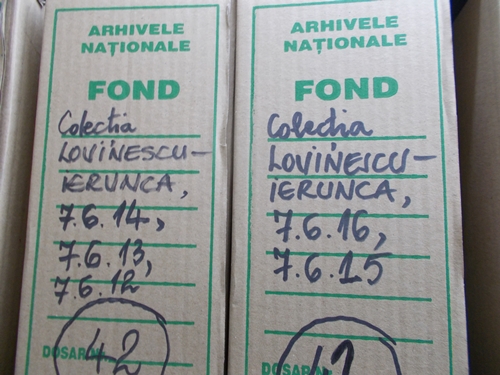 ARHIVELE
NAȚIONALE
FOND
Colectia
LOVINESCU-
IERUNCA,
7.6.14,
7.6.13,
7.6.12
DOSAR N
42
ARHIVELE
NAȚIONALE
FOND
Colectia
LOVINESCU-
IERUNCA,
7.6.16,
7.6.15
DOSAR